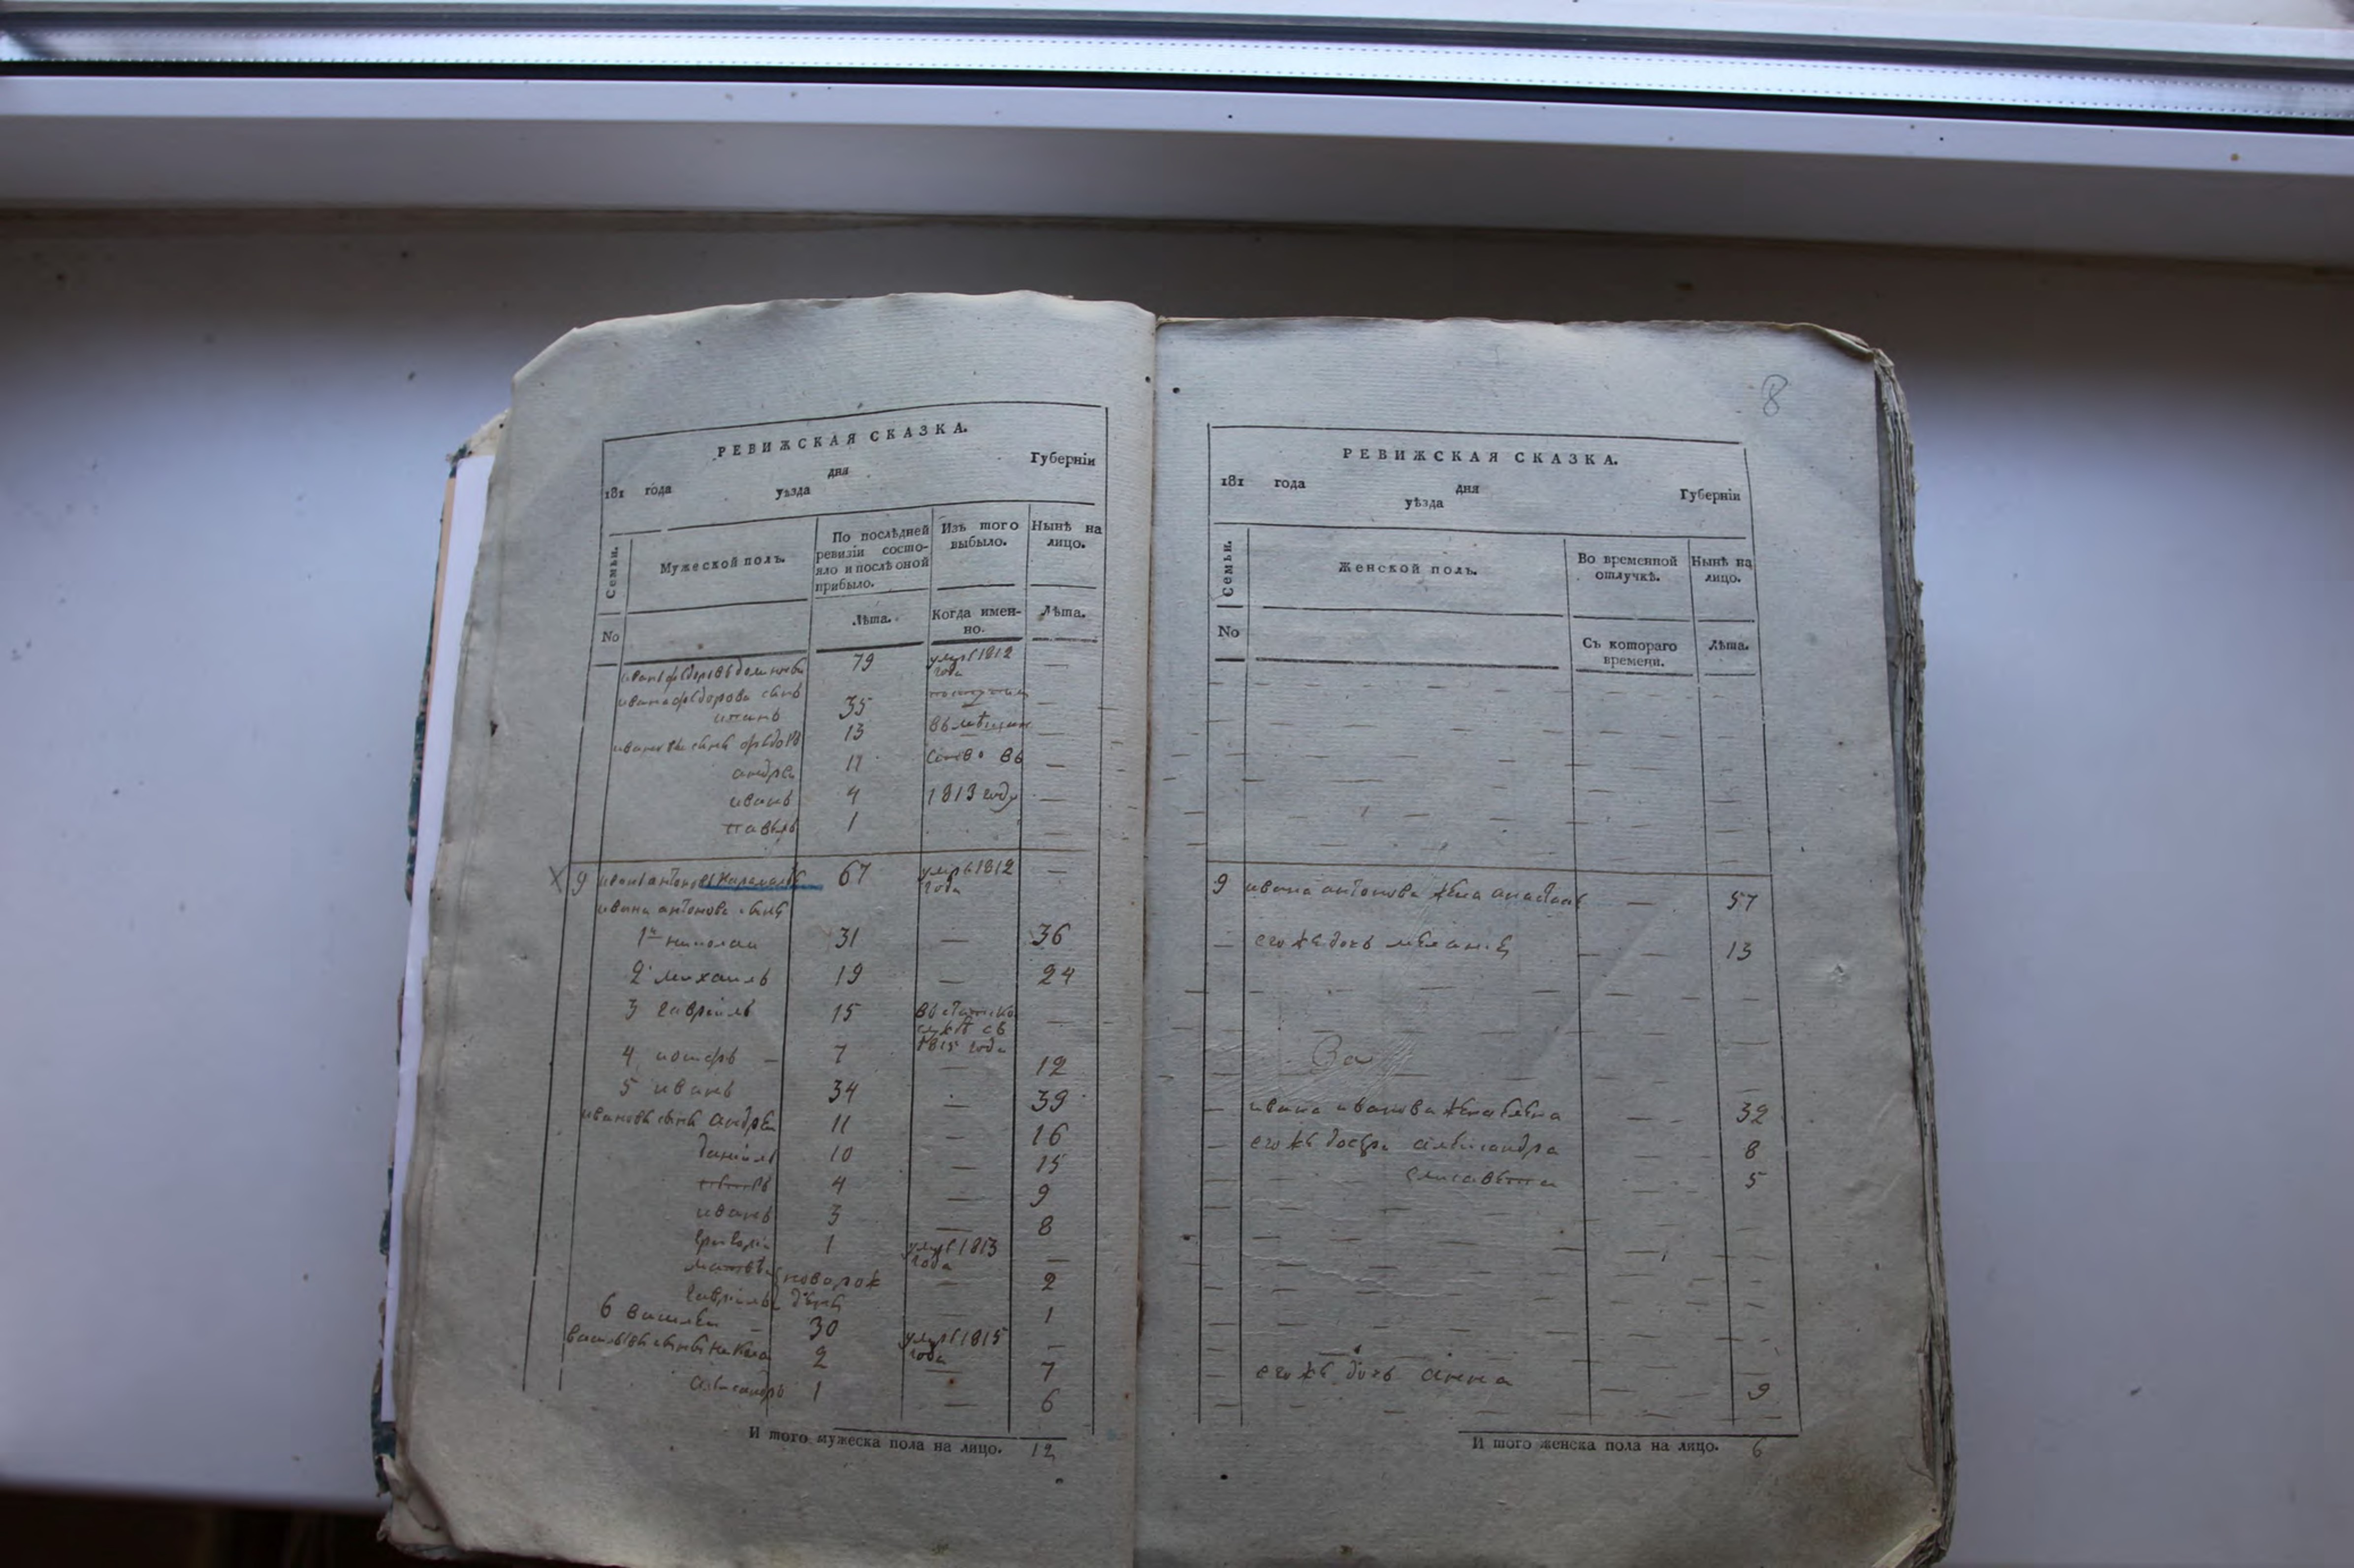 РЕВИЖСКАЯ СКАЗКА.
181 года дня Губерніи
уѣзда
Семьи.
No
Мужеской полъ.
По послѣдней ревизіи состо-
яло и послѣ оной прибыло.
Лѣта.
Изъ того выбыло.
Когда имен-
но.
Нынѣ на лицо.
Лѣта.
иванъ федоровъ 79 умре 1812 года —
ивана федорова сынъ 35
ивановы сынъ федоръ 13 —
андрей 11 въ —
иванъ 4 1813 году —
павелъ 1 —
9 иванъ антоновъ 67 умре 1812 года —
ивана антонова сынъ
1й николаи 31 — 36
2 михаилъ 19 — 24
3 гаврiилъ 15 съ 1815 года —
4 иосифъ — 7 — 12
5 иванъ 34 — 39
ивановы сынъ андреи 11 — 16
данiилъ 10 — 15
4 — 9
иванъ 3 — 8
григорiи 1 умре 1813 года —
новорож — 2
гаврiилъ дены — 1
6 василеи — 30 умре 1815 года —
васильевы сынъ 2 — 7
александръ 1 — 6
И того мужеска пола на лицо. 12
8
РЕВИЖСКАЯ СКАЗКА.
181 года дня Губерніи
уѣзда
Семьи.
No
Женской полъ.
Во временной отлучкѣ.
Съ котораго времени.
Нынѣ на лицо.
Лѣта.
9 ивана антонова жена анастасія — 57
— его же дочь меланія — — 13
За
— ивана иванова жена елена — — 32
— его же дочери александра — — 8
елисавета 5
его же дочь анна — — 9
И того женска пола на лицо. 6